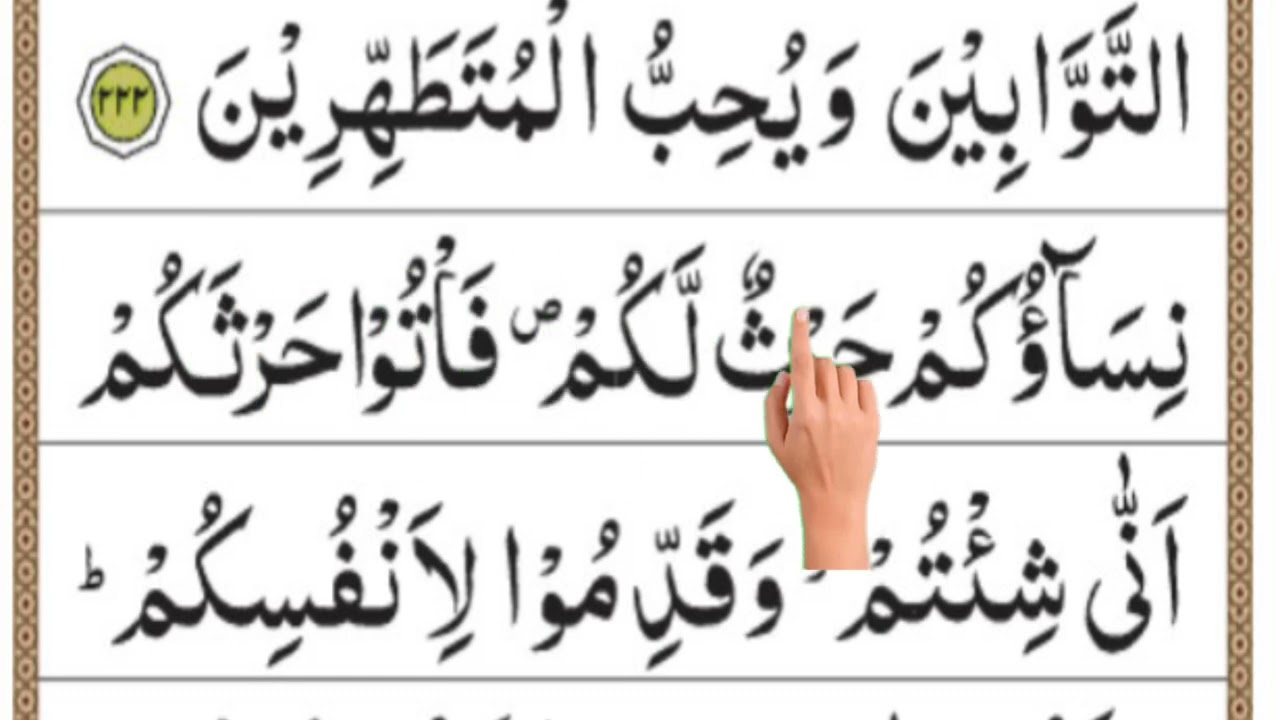 التَّوَّابِيْنَ وَيُحِبُّ الْمُتَطَهِّرِيْنَ ٢٢٢
نِسَآؤُكُمْ حَرْثٌ لَّكُمْ ۖ فَأْتُوْا حَرْثَكُمْ
اَنّٰى شِئْتُمْ وَقَدِّمُوْا لِاَنْفُسِكُمْ ؕ